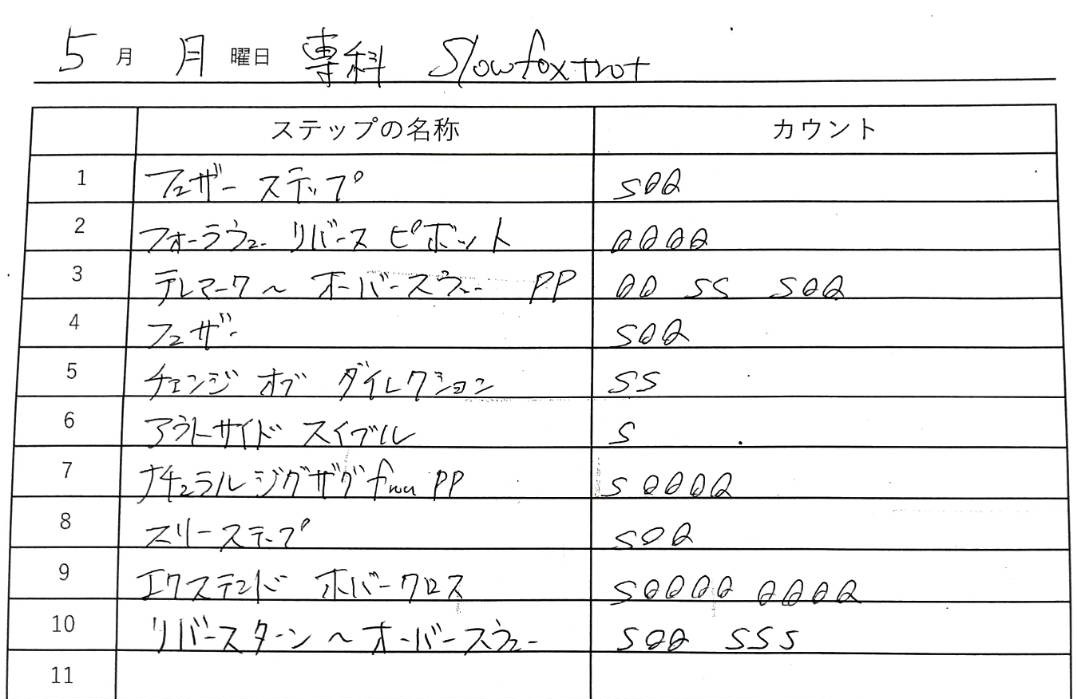 5月 月曜日 専科 Slowfoxtrot
ステップの名称 カウント
1 フェザー ステップ SQQ
2 フォーラウェー リバース ピボット QQQQ
3 テレマーク～オーバースウェー PP QQ SS SQQ
4 フェザー SQQ
5 チェンジ オブ ダイレクション SS
6 アウトサイド スイブル S
7 ナチュラル ジグザグ from PP S QQQQ
8 スリーステップ SQQ
9 エクステンド ホバークロス SQQQQ QQQQ
10 リバースターン～オーバースウェー SQQ SSS
11